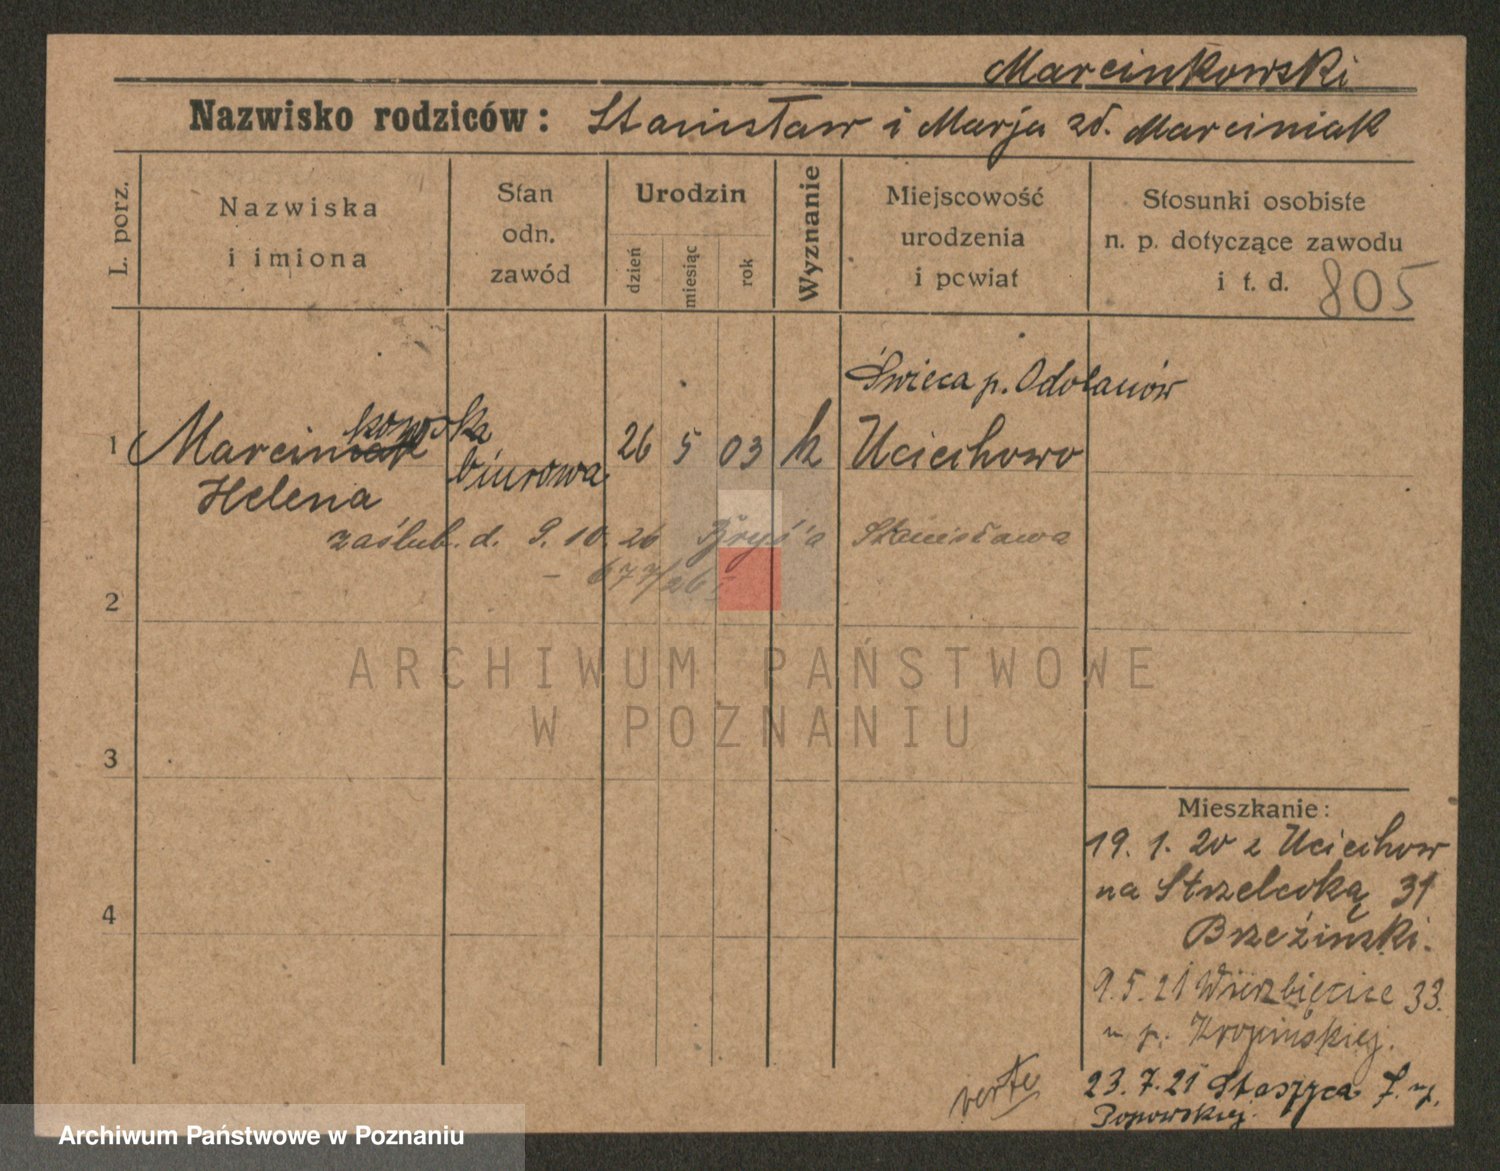 Marcinkowski
Nazwisko rodziców: Stanisław i Marja zd. Marciniak
L. porz.
Nazwiska
i imiona
Stan
odn.
zawód
Urodzin
dzień
miesiąc
rok
Wyznanie
Miejscowość
urodzenia
i powiat
Stosunki osobiste
n. p. dotyczące zawodu
i t. d. 805
Świeca p. Odolanów
kowska
1 Marciniak biurowa 26 5 03 k Uciechowo
Helena
zaślub. d. 9. 10. 26 Bryś'a Stanisława
677/26
2
ARCHIWUM PAŃSTWOWE
W POZNANIU
3
4
Mieszkanie:
19. 1. 20 z Uciechow
na Strzelecką 31
Brzeziński.
9. 5. 21 Wierzbięcice 33.
u p. Kropińskiej.
23. 7. 21 Staszyca
Popowskiej.
verte
Archiwum Państwowe w Poznaniu